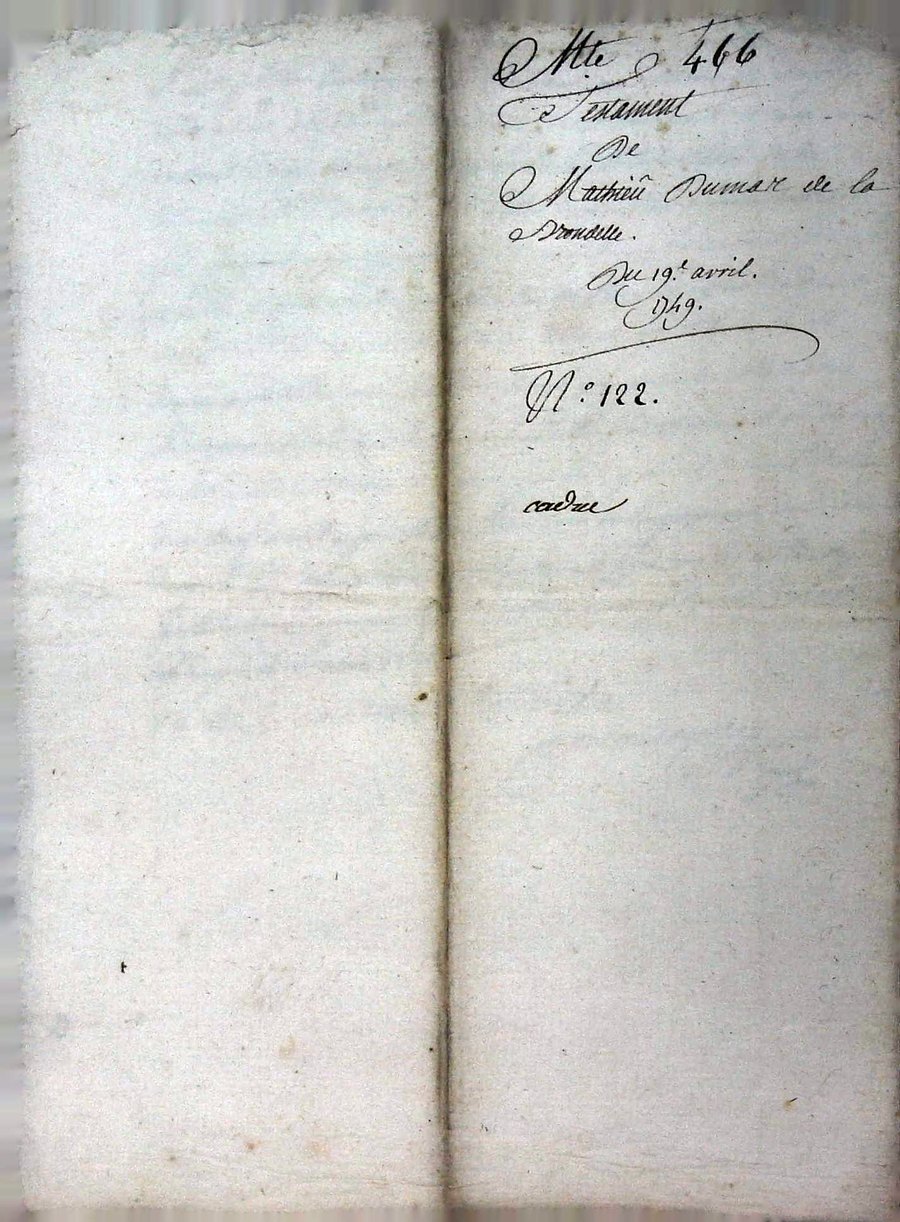 Mte 466
Testament
De
Mathieû Dumar de la
Brondelle.
Du 19.e avril.
1749.
N.o 122.
caduc